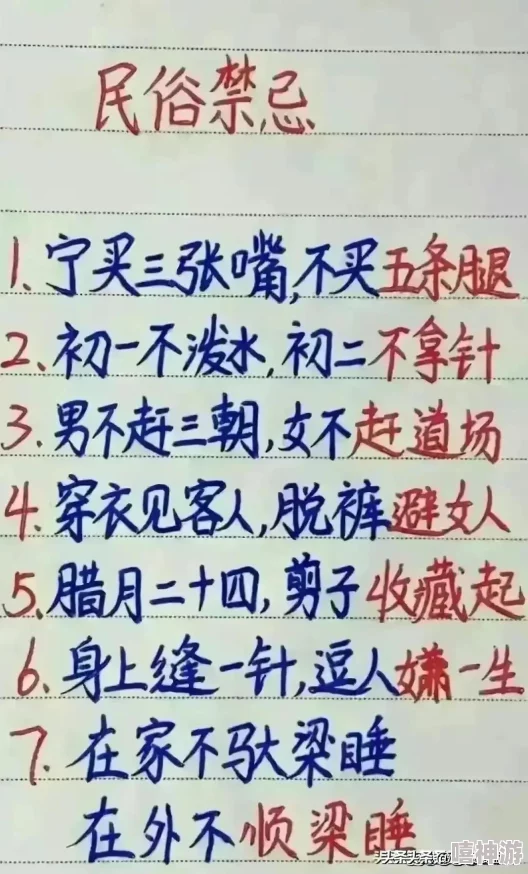 民俗禁忌
1、宁买三张嘴,不买五条腿
2、初一不泼水,初二不拿针
3、男不赶三朝,女不赶道场
4、穿衣见客人,脱裤避女人
5、腊月二十四,剪子收藏起
6、身上缝一针,逗人嫌一生
7、在家不驮梁睡
在外不顺梁睡
嘻神游